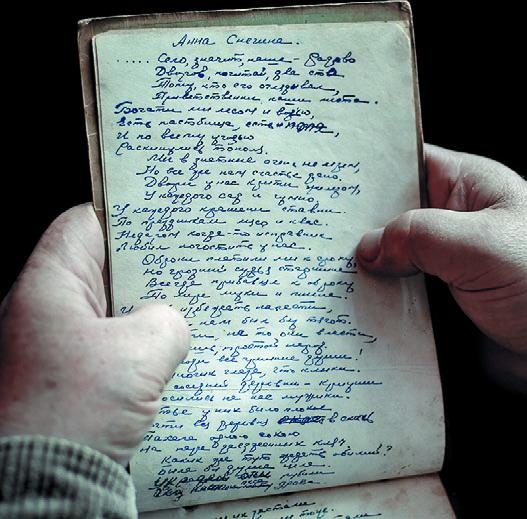 Анна Снегина.
..... Село, значит, наше – Радово
Дворов, почитай, два ста
Тому, кто его оглядывал,
Приятственны наши места.
Богаты мы лесом и водью,
Есть пастбища, есть поля,
И по всему угодью
Рассажены тополя.
Мы в очень не лезем,
Но все же нам счастье дано.
Дворы у нас крыты железом,
У каждого сад и гумно,
У каждого крашены ставни.
По праздникам мясо и квас.
Недаром когда-то исправник
Любил погостить у нас.
Оброки платили мы к сроку,
Но грозный судья старшина
Всегда прибавлял к оброку
По мере муки и пшена.
избежать напасти,
нам был без тягот.
на то они власти,
простой народ.
все грешные души!
глаза, что клыки.
соседней деревни – Криуши
на нас мужики.
у них было плохое
вся деревня вскачь
Пахала одною сохою
На паре заезженных кляч.
Каких уж тут ждать обилий?
Была бы душа
Украдкой они рубили
дрова